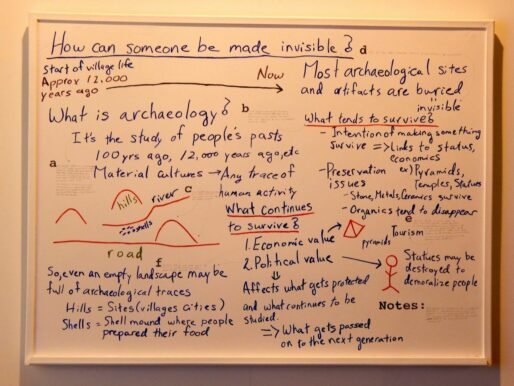 How can someone be made invisible?
d
Start of village life
Approx 12,000
years ago
Now
Most archaeological sites
and artifacts are buried
invisible
What is archaeology?
b
It's the study of people's pasts
100 yrs ago, 12,000 years ago, etc
a
Material Cultures → Any trace of
human activity
hills
river
c
shells
road
f
So, even an empty landscape may be
full of archaeological traces
Hills = Sites (villages cities)
Shells = Shell mound where people
prepared their food
What tends to survive?
- Intention of making something
survive => Links to status,
economics
- Preservation ex) Pyramids,
issues Temples, Statues
- Stone, Metals, Ceramics survive
- Organics tend to disappear
e
What continues
to survive?
1. Economic value
pyramids
Tourism
2. Political value
Statues may be
destroyed to
demoralize people
Affects what gets protected
and what continues to be
studied.
=> What gets passed
on to the next generation
Notes: